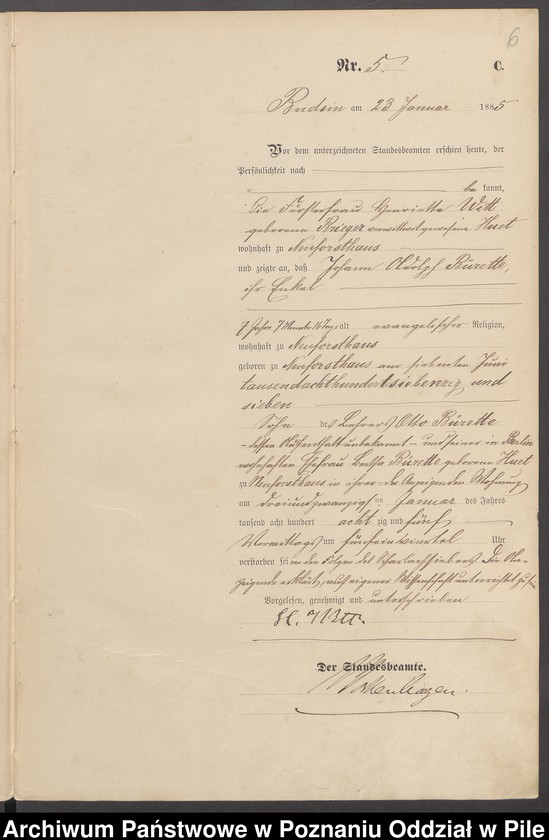 6
Nr. 5. C.
Budsin am 23 Januar 1885
Vor dem unterzeichneten Standesbeamten erschien heute, der
Persönlichkeit nach
be kannt,
die Försterfrau Henriette Witt
geborene Krüger verwittwet gewesene Huet
wohnhaft zu Neuforsthaus
und zeigte an, daß Johann Adolph Bürette,
ihr Enkel
7 Jahre 7 Monate 16 Tage alt evangelischer Religion,
wohnhaft zu Neuforsthaus
geboren zu Neuforsthaus am siebenten Juni
tausendachthundertsiebenzig und
sieben
Sohn des Lehrers Otto Bürette
dessen Aufenthalt unbekannt und seiner in Berlin
wohnhaften Ehefrau Bertha Bürette geborene Huet
zu Neuforsthaus in ihrer der Anzeigenden Wohnung
am dreiundzwanzigsten Januar des Jahres
tausend acht hundert acht zig und fünf
Vormittags um fünfeinviertel Uhr
verstorben sei an den Folgen des Scharlachfiebers. Die An-
zeigende erklärt, aus eigener Wissenschaft unterrichtet zu sein
Vorgelesen, genehmigt und unterschrieben
H. Witt.
Der Standesbeamte.
Archiwum Państwowe w Poznaniu Oddział w Pile